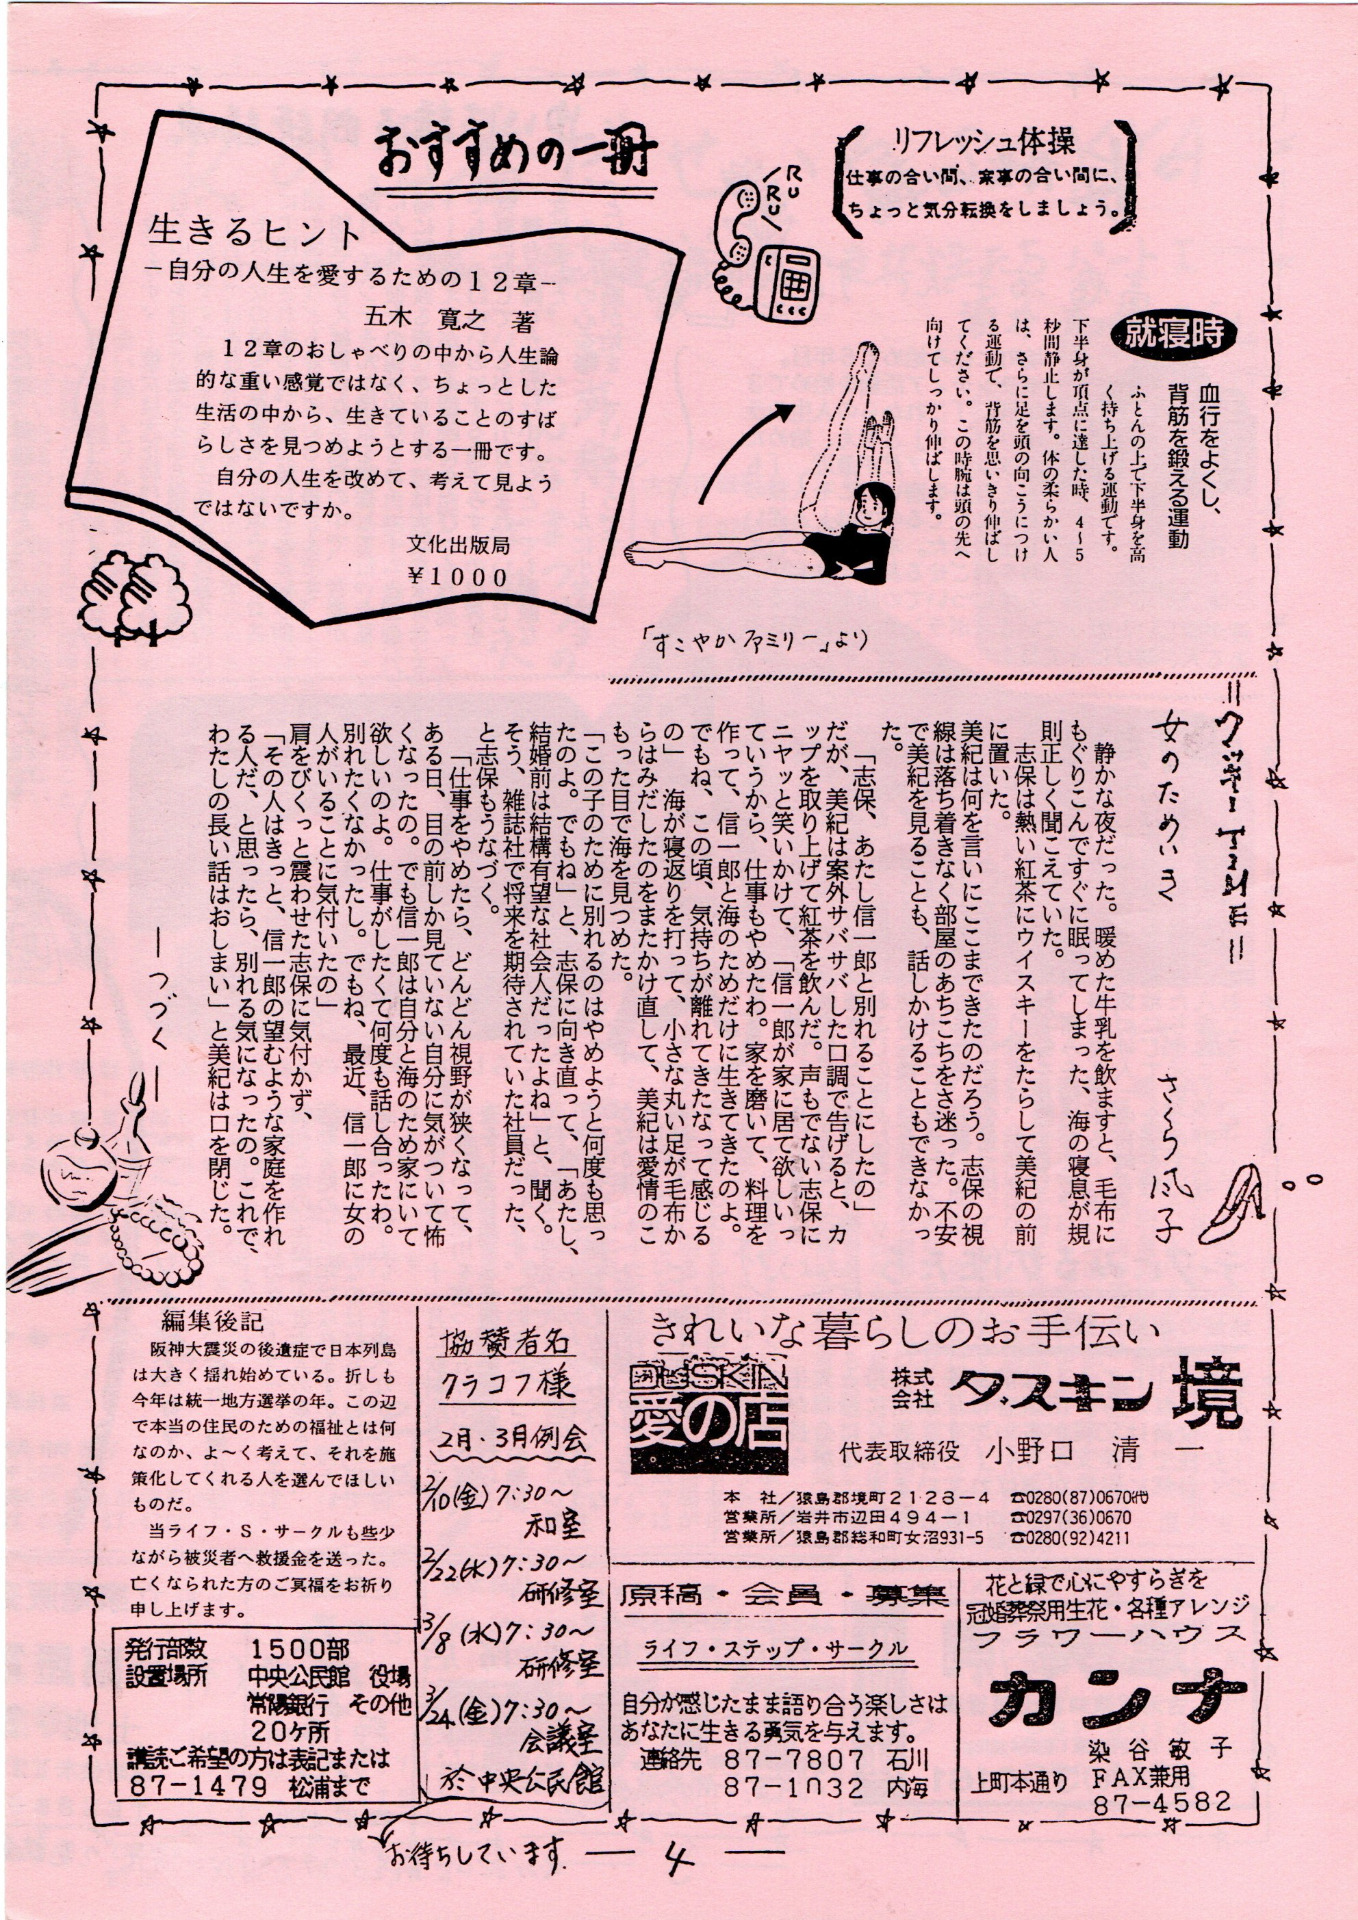 おすすめの一冊
生きるヒント
－自分の人生を愛するための12章－
五木 寛之 著
12章のおしゃべりの中から人生論
的な重い感覚ではなく、ちょっとした
生活の中から、生きていることのすば
らしさを見つめようとする一冊です。
自分の人生を改めて、考えて見よう
ではないですか。
文化出版局
¥1000
RU
RU
リフレッシュ体操
仕事の合い間、家事の合い間に、
ちょっと気分転換をしましょう。
就寝時
血行をよくし、
背筋を鍛える運動
ふとんの上で下半身を高
く持ち上げる運動です。
下半身が頂点に達した時、4〜5
秒間静止します。体の柔らかい人
は、さらに足を頭の向こうにつけ
る運動で、背筋を思いきり伸ばし
てください。この時腕は頭の先へ
向けてしっかり伸ばします。
「すこやかファミリー」より
女のためいき
さくら風子
静かな夜だった。暖めた牛乳を飲ますと、毛布に
もぐりこんですぐに眠ってしまった、海の寝息が規
則正しく聞こえていた。
志保は熱い紅茶にウイスキーをたらして美紀の前
に置いた。
美紀は何を言いにここまできたのだろう。志保の視
線は落ち着きなく部屋のあちこちをさ迷った。不安
で美紀を見ることも、話しかけることもできなかっ
た。
「志保、あたし信一郎と別れることにしたの」
だが、美紀は案外サバサバした口調で告げると、カ
ップを取り上げて紅茶を飲んだ。声もでない志保に
ニヤッと笑いかけて、「信一郎が家に居て欲しいっ
ていうから、仕事もやめたわ。家を磨いて、料理を
作って、信一郎と海のためだけに生きてきたのよ。
でもね、この頃、気持ちが離れてきたなって感じる
の」 海が寝返りを打って、小さな丸い足が毛布か
らはみだしたのをまたかけ直して、美紀は愛情のこ
もった目で海を見つめた。
「この子のために別れるのはやめようと何度も思っ
たのよ。でもね」と、志保に向き直って、「あたし、
結婚前は結構有望な社会人だったよね」と、聞く。
そう、雑誌社で将来を期待されていた社員だった、
と志保もうなづく。
「仕事をやめたら、どんどん視野が狭くなって、
ある日、目の前しか見ていない自分に気がついて怖
くなったの。でも信一郎は自分と海のため家にいて
欲しいのよ。仕事がしたくて何度も話し合ったわ。
別れたくなかったし。でもね、最近、信一郎に女の
人がいることに気付いたの」
肩をびくっと震わせた志保に気付かず、
「その人はきっと、信一郎の望むような家庭を作れ
る人だ、と思ったら、別れる気になったの。これで、
わたしの長い話はおしまい」と美紀は口を閉じた。
―つづく―
編集後記
阪神大震災の後遺症で日本列島
は大きく揺れ始めている。折しも
今年は統一地方選挙の年。この辺
で本当の住民のための福祉とは何
なのか、よ〜く考えて、それを施
策化してくれる人を選んでほしい
ものだ。
当ライフ・S・サークルも些少
ながら被災者へ救援金を送った。
亡くなられた方のご冥福をお祈り
申し上げます。
発行部数 1500部
設置場所 中央公民館 役場
常陽銀行 その他
20ケ所
購読ご希望の方は表記または
87-1479 松浦まで
協賛者名
クラコフ様
2月・3月例会
2/10(金)7:30〜
和室
2/22(水)7:30〜
研修室
3/8(水)7:30〜
研修室
3/24(金)7:30〜
会議室
於中央公民館
お待ちしています。
きれいな暮らしのお手伝い
DUSKIN
愛の店
株式会社 ダスキン 境
代表取締役 小野口 清一
本 社／猿島郡境町2123-4 ☎0280(87)0670代
営業所／岩井市辺田494-1 ☎0297(36)0670
営業所／猿島郡総和町女沼931-5 ☎0280(92)4211
原稿・会員・募集
ライフ・ステップ・サークル
自分が感じたまま語り合う楽しさは
あなたに生きる勇気を与えます。
連絡先 87-7807 石川
87-1032 内海
花と緑で心にやすらぎを
冠婚葬祭用生花・各種アレンジ
フラワーハウス
カンナ
染谷敏子
上町本通り FAX兼用
87-4582
― 4 ―